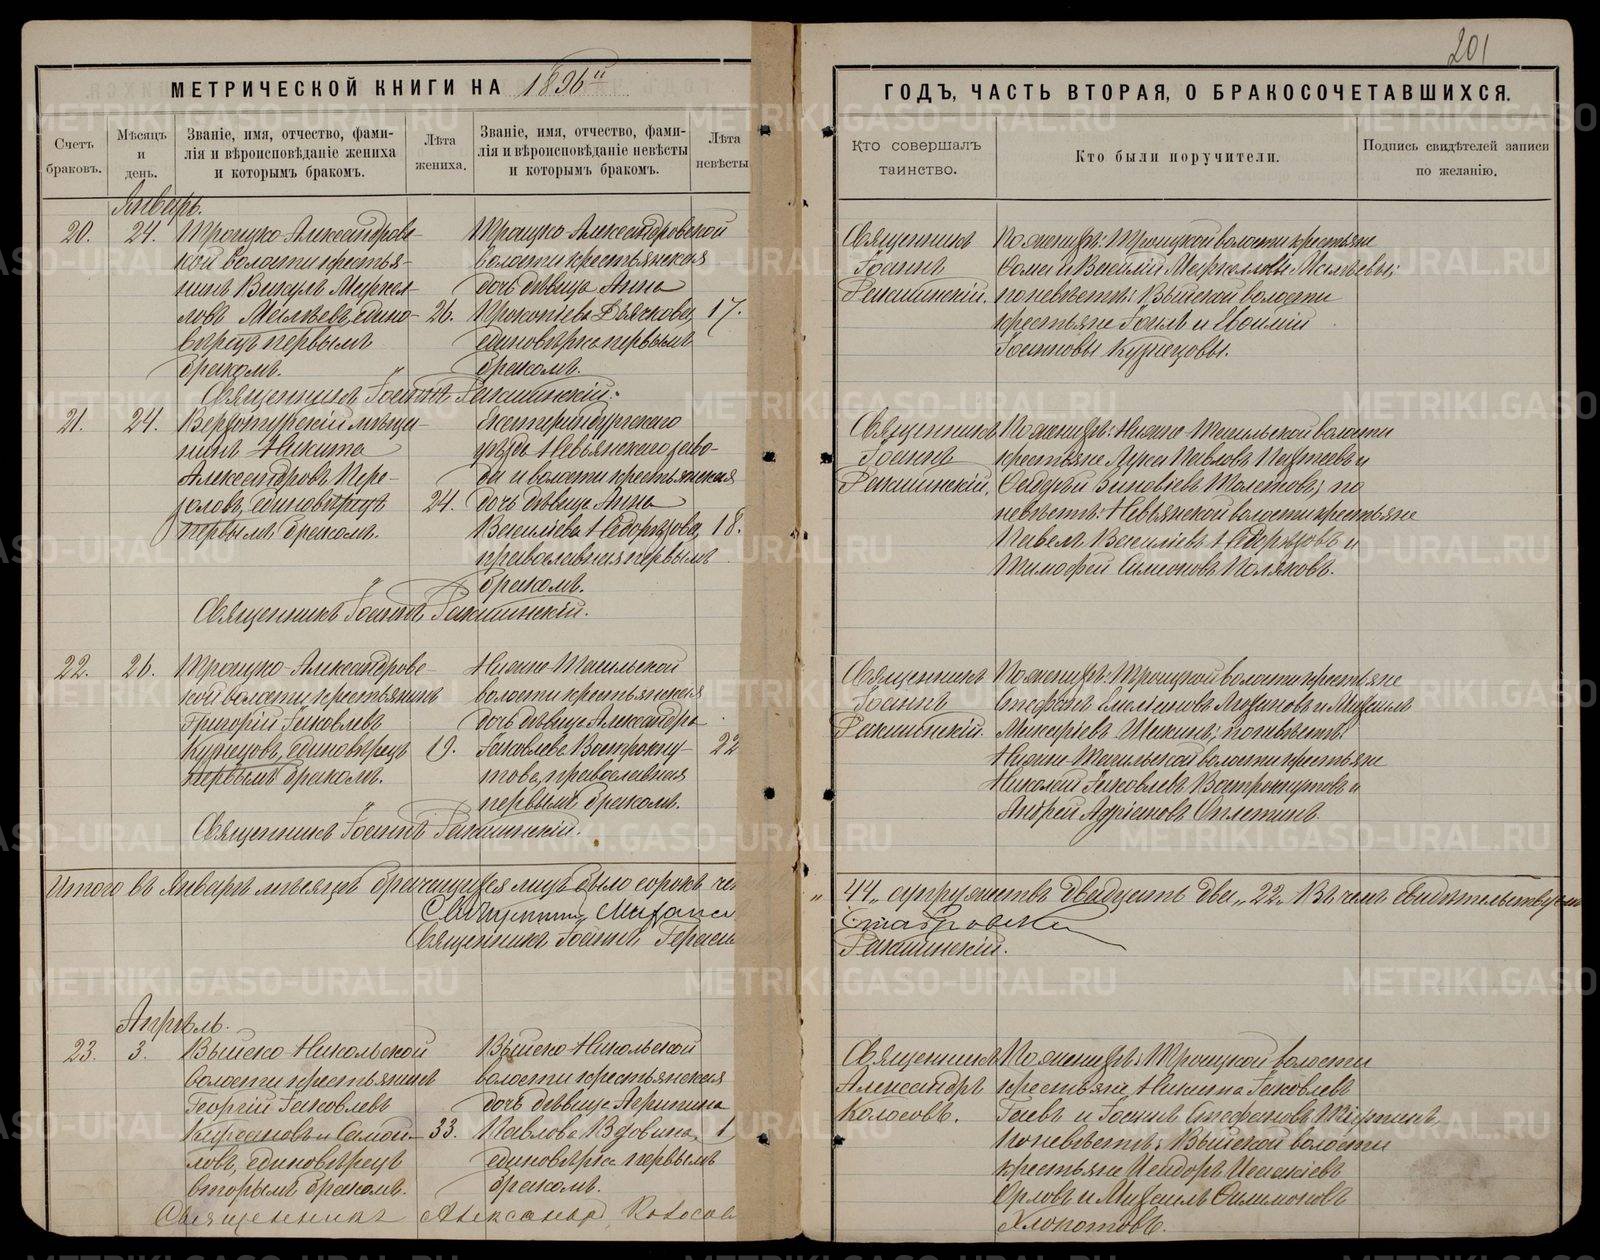 201
МЕТРИЧЕСКОЙ КНИГИ НА 1896й
Счетъ браковъ.
Мѣсяцъ и день.
Званіе, имя, отчество, фами-
лія и вѣроисповѣданіе жениха
и которымъ бракомъ.
Лѣта жениха.
Званіе, имя, отчество, фами-
лія и вѣроисповѣданіе невѣсты
и которымъ бракомъ.
Лѣта невѣсты
Январь.
20. 24. Троицко-Александровс-
кой волости крестья-
нинъ Викулъ Меркел-
ловъ едино- 26.
вѣрецъ первымъ
бракомъ.
Троицко-Александровской
волости крестьянская
дочь дѣвица Анна
Прокопіева Дьячкова, 17.
единовѣрка первымъ
бракомъ.
Священникъ Іоаннъ Ракшинскій.
21. 24. Верхотурскій мѣща-
нинъ Никита
Александровъ Пере-
золовъ, единовѣрецъ 24.
первымъ бракомъ.
Екатеринбургскаго
уѣзда Невьянскаго заво-
да и волости крестьянская
дочь дѣвица Анна
Васильева 18.
православная первымъ
бракомъ.
Священникъ Іоаннъ Ракшинскій.
22. 26. Троицко-Александровс-
кой волости крестьянинъ
Григорій Яковлевъ
Кузнецовъ, единовѣрецъ 19.
первымъ бракомъ.
Нижне-Тагильской
волости крестьянская
дочь дѣвица Александра
Яковлева Вострокну- 22
това, православная
первымъ бракомъ.
Священникъ Іоаннъ Ракшинскій.
Итого въ Январѣ мѣсяцѣ брачащихся лицъ было сорокъ че
Священникъ Михаил
Священникъ Іоаннъ
Апрѣль.
23. 3. Выйско-Никольской
волости крестьянинъ
Георгій Яковлевъ
Кирсановъ и Самой- 33.
ловъ, единовѣрецъ
вторымъ бракомъ.
Выйско-Никольской
волости крестьянская
дочь дѣвица Агрипина
Павлова Вдовина, 1
единовѣрка первымъ
бракомъ.
Священникъ Александръ Колосов
ГОДЪ, ЧАСТЬ ВТОРАЯ, О БРАКОСОЧЕТАВШИХСЯ.
Кто совершалъ
таинство.
Кто были поручители.
Подпись свидѣтелей записи
по желанію.
Священникъ
Іоаннъ
Ракшинскій.
По женихѣ: Троицкой волости крестьяне
и Василій Меркелловы
по невѣстѣ: Выйской волости
крестьяне и
Іоанновы Кузнецовы.
Священникъ
Іоаннъ
Ракшинскій.
По женихѣ: Нижне-Тагильской волости
крестьяне Лука Павловъ и
Зиновьевъ по
невѣстѣ: Невьянской волости крестьяне
Павелъ Васильевъ и
Тимофей Симеоновъ Поляковъ.
Священникъ
Іоаннъ
Ракшинскій.
По женихѣ: Троицкой волости крестьяне
Стефанъ и Михаилъ
по невѣстѣ:
Нижне-Тагильской волости крестьяне
Николай Яковлевъ Вострокнутовъ и
Андрей Адріановъ Оплетинъ.
„44„ супружествъ двадцать два „22„ Въ чемъ свидѣтельствуемъ
Ставровскій
Ракшинскій.
Священникъ
Александръ
Колосовъ.
По женихѣ: Троицкой волости
крестьяне Никита Яковлевъ
и Іоаннъ Стефановъ
по невѣстѣ: Выйской волости
крестьяне Исаакіевъ
Орловъ и Михаилъ Филимоновъ
Хлопотовъ.
METRIKI.GASO-URAL.RU